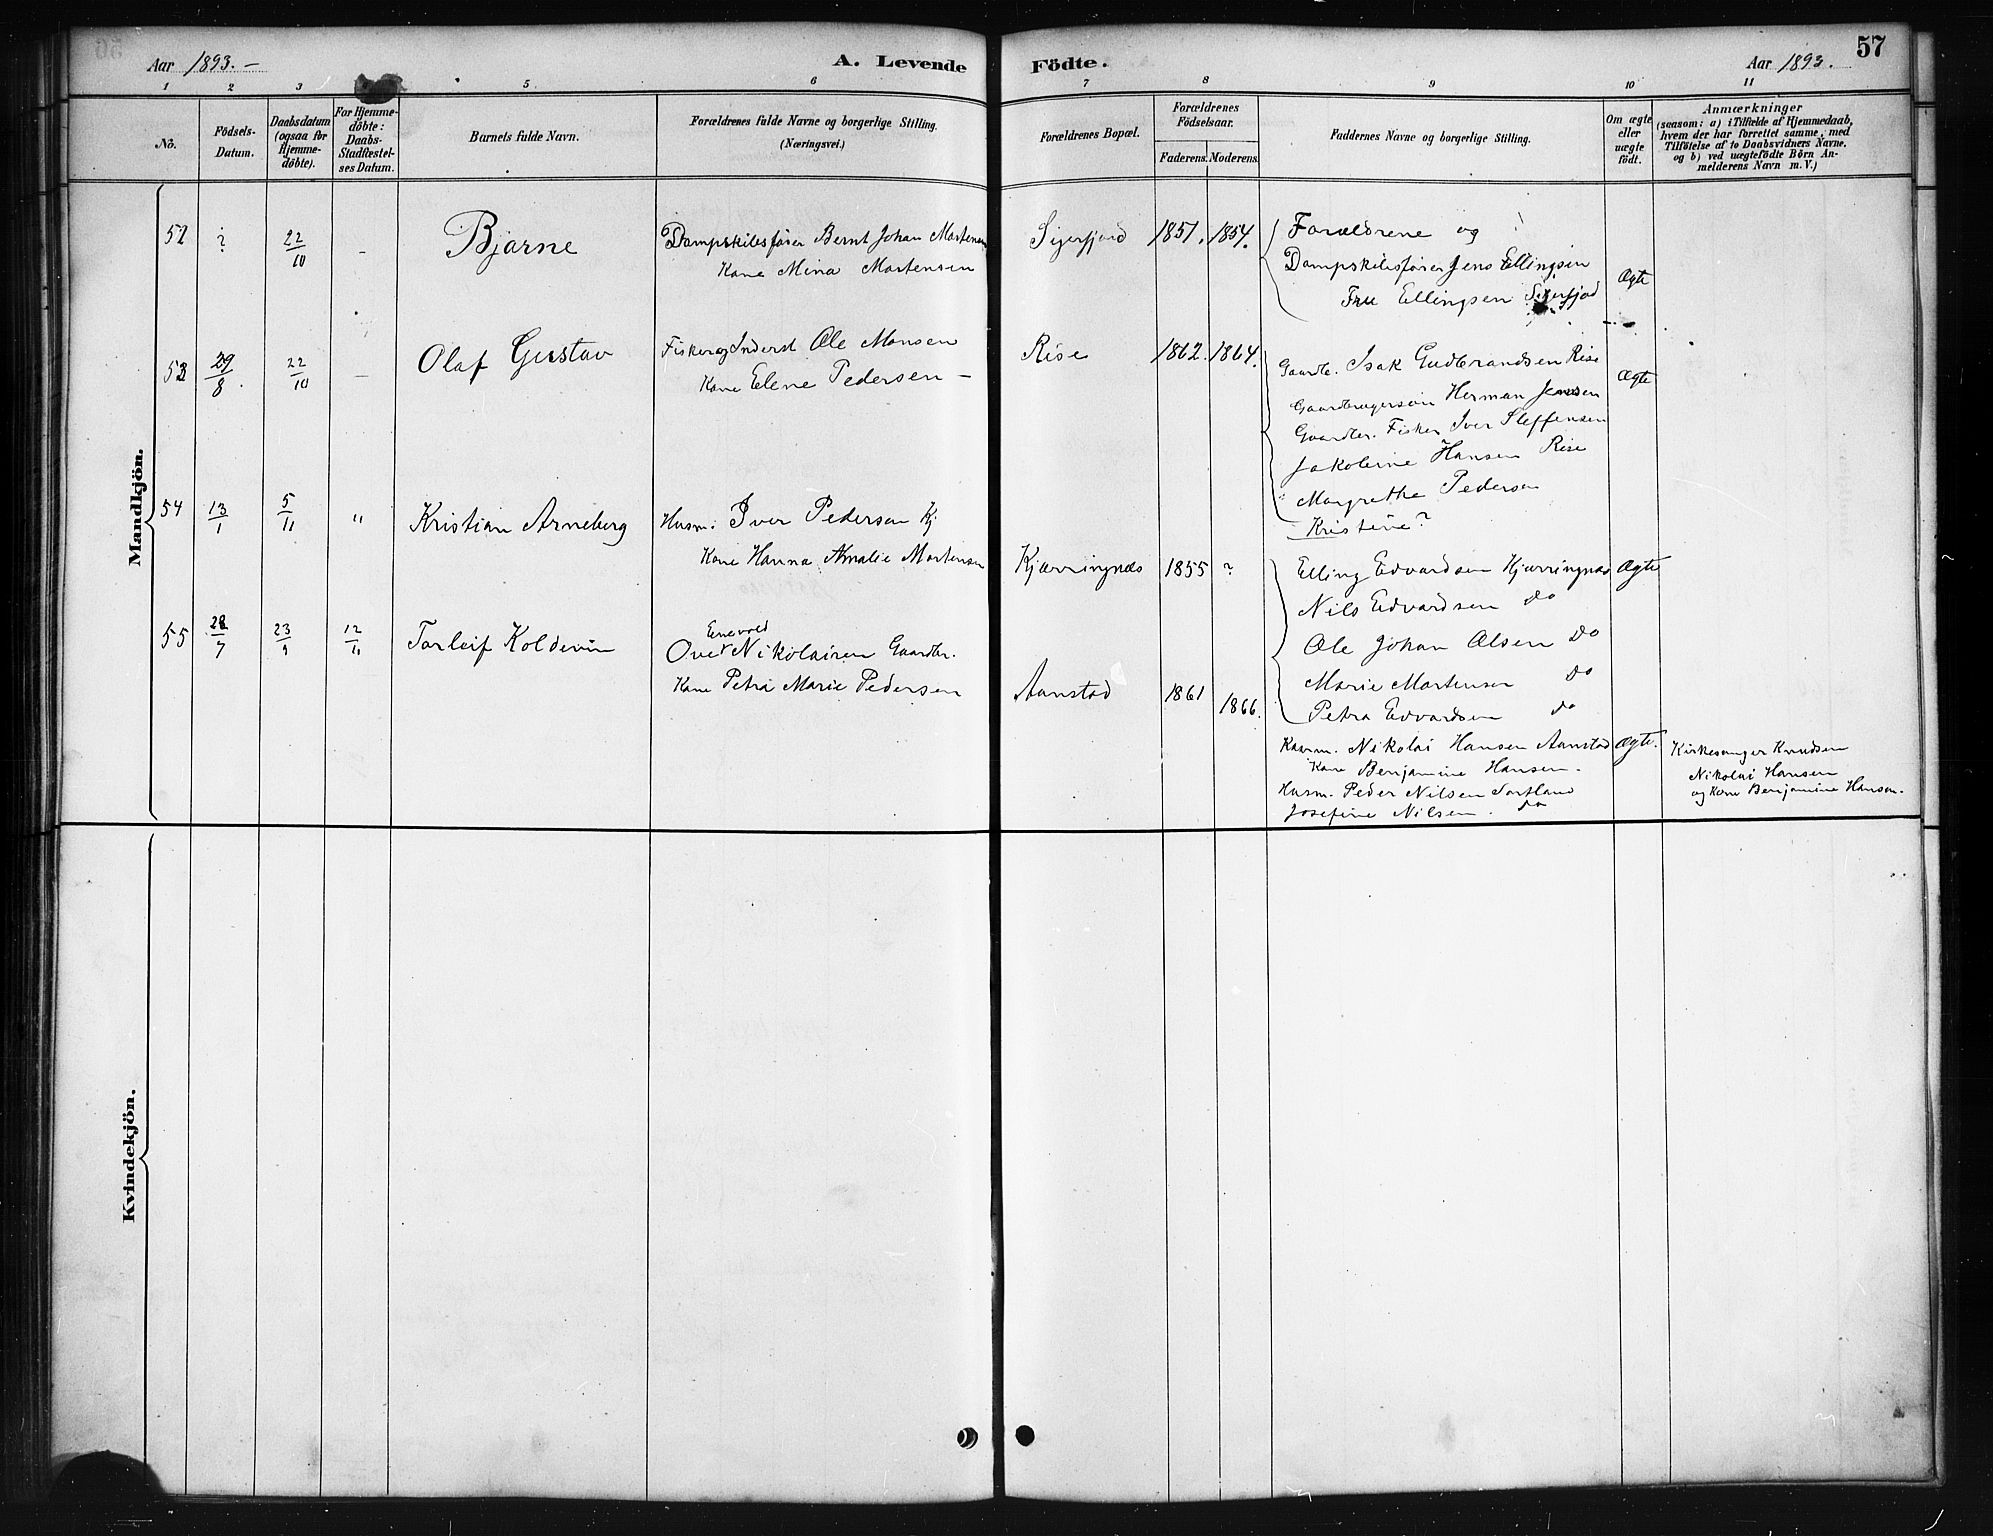 Aar 1893.–
A. Levende
Födte.
Aar 1893.
57
1 2 3 5. 6 7 8 9 10 11
No.
Födsels-
Datum.
Daabsdatum
(ogsaa for
Hjemme-
döbte).
For Hjemme-
döbte:
Daabs-
Stadfestel-
ses Datum.
Barnets fulde Navn.
Forældrenes fulde Navne og borgerlige Stilling.
(Næringsvei.)
Forældrenes Bopæl.
Forældrenes
Födselsaar.
Faderens. Moderens.
Faddernes Navne og borgerlige Stilling.
Om ægte
eller
uægte
födt.
Anmærkninger
(saasom: a) i Tilfælde af Hjemmedaab,
hvem der har forrettet samme, med
Tilföielse af to Daabsvidners Navne.
og b) ved uægtefödte Börn An-
melderens Navn m. V.)
Mandkjön.
52 ? 22/10 – Bjarne
Dampskibsfører Bernt Johan Mortensen
Kone Mina Mortensen
Sigerfjord 1851. 1854.
Forældrene og
Dampskibsfører Jens Ellingsen
Fru Ellingsen Sigerfjod
Ægte
53 29/8 22/10 – Olaf Gustav
Fisker og Inderst Ole Monsen
Kone Elene Pedersen –
Rise 1862. 1864.
Gaardbr. Isak Gudbrandsen Rise
Gaardbrugersøn Herman Jensen
Gaardbr. Fisker Iver Steffensen
Jakobine Hansen Rise
Margrethe Pedersen
Kristine?
Ægte
54 13/1 5/11 " Kristian Arneberg
Husm. Iver Pedersen Kj
Kone Hanna Amalie Mortensen
Kjærringnæs 1855 ?
Elling Edvardsen Kjærringnæs
Nils Edvardsen do
Ole Johan Olsen do
Marie Mortensen do
Petra Edvardsen do
Ægte
55 28/7 23/9 12/11 Torleif Koldevin
Enevold
Ove Nikolaisen Gaardbr.
Kone Petra Marie Pedersen
Aanstad 1861 1866.
Nikolai Hansen Aanstad
Kone Benjamine Hansen.
Husm. Peder Nilsen Sortland
Josefine Nilsen. do
Ægte.
Kirkesanger Knudsen
Nikolai Hansen
og Kone Benjamine Hansen.
Kvindekjön.